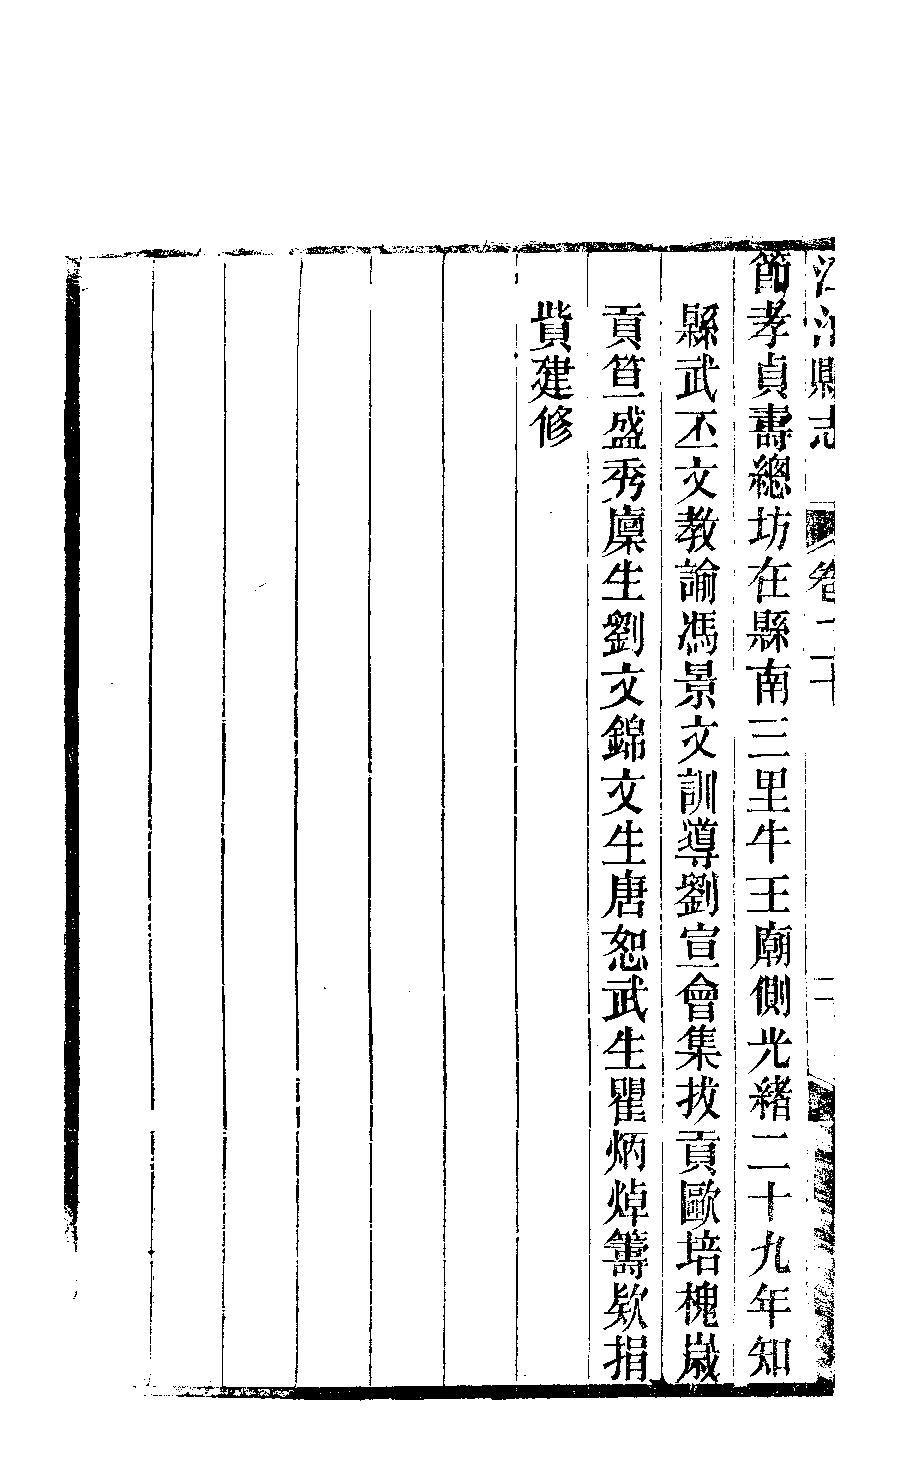 江油縣志
卷二十
節孝貞壽總坊在縣南三里牛王廟側光緒二十九年知
縣武丕文教諭馮景文訓導劉宣會集拔貢歐培槐歲
貢笪盛秀廩生劉文錦文生唐恕武生瞿炳焯籌欵捐
貲建修